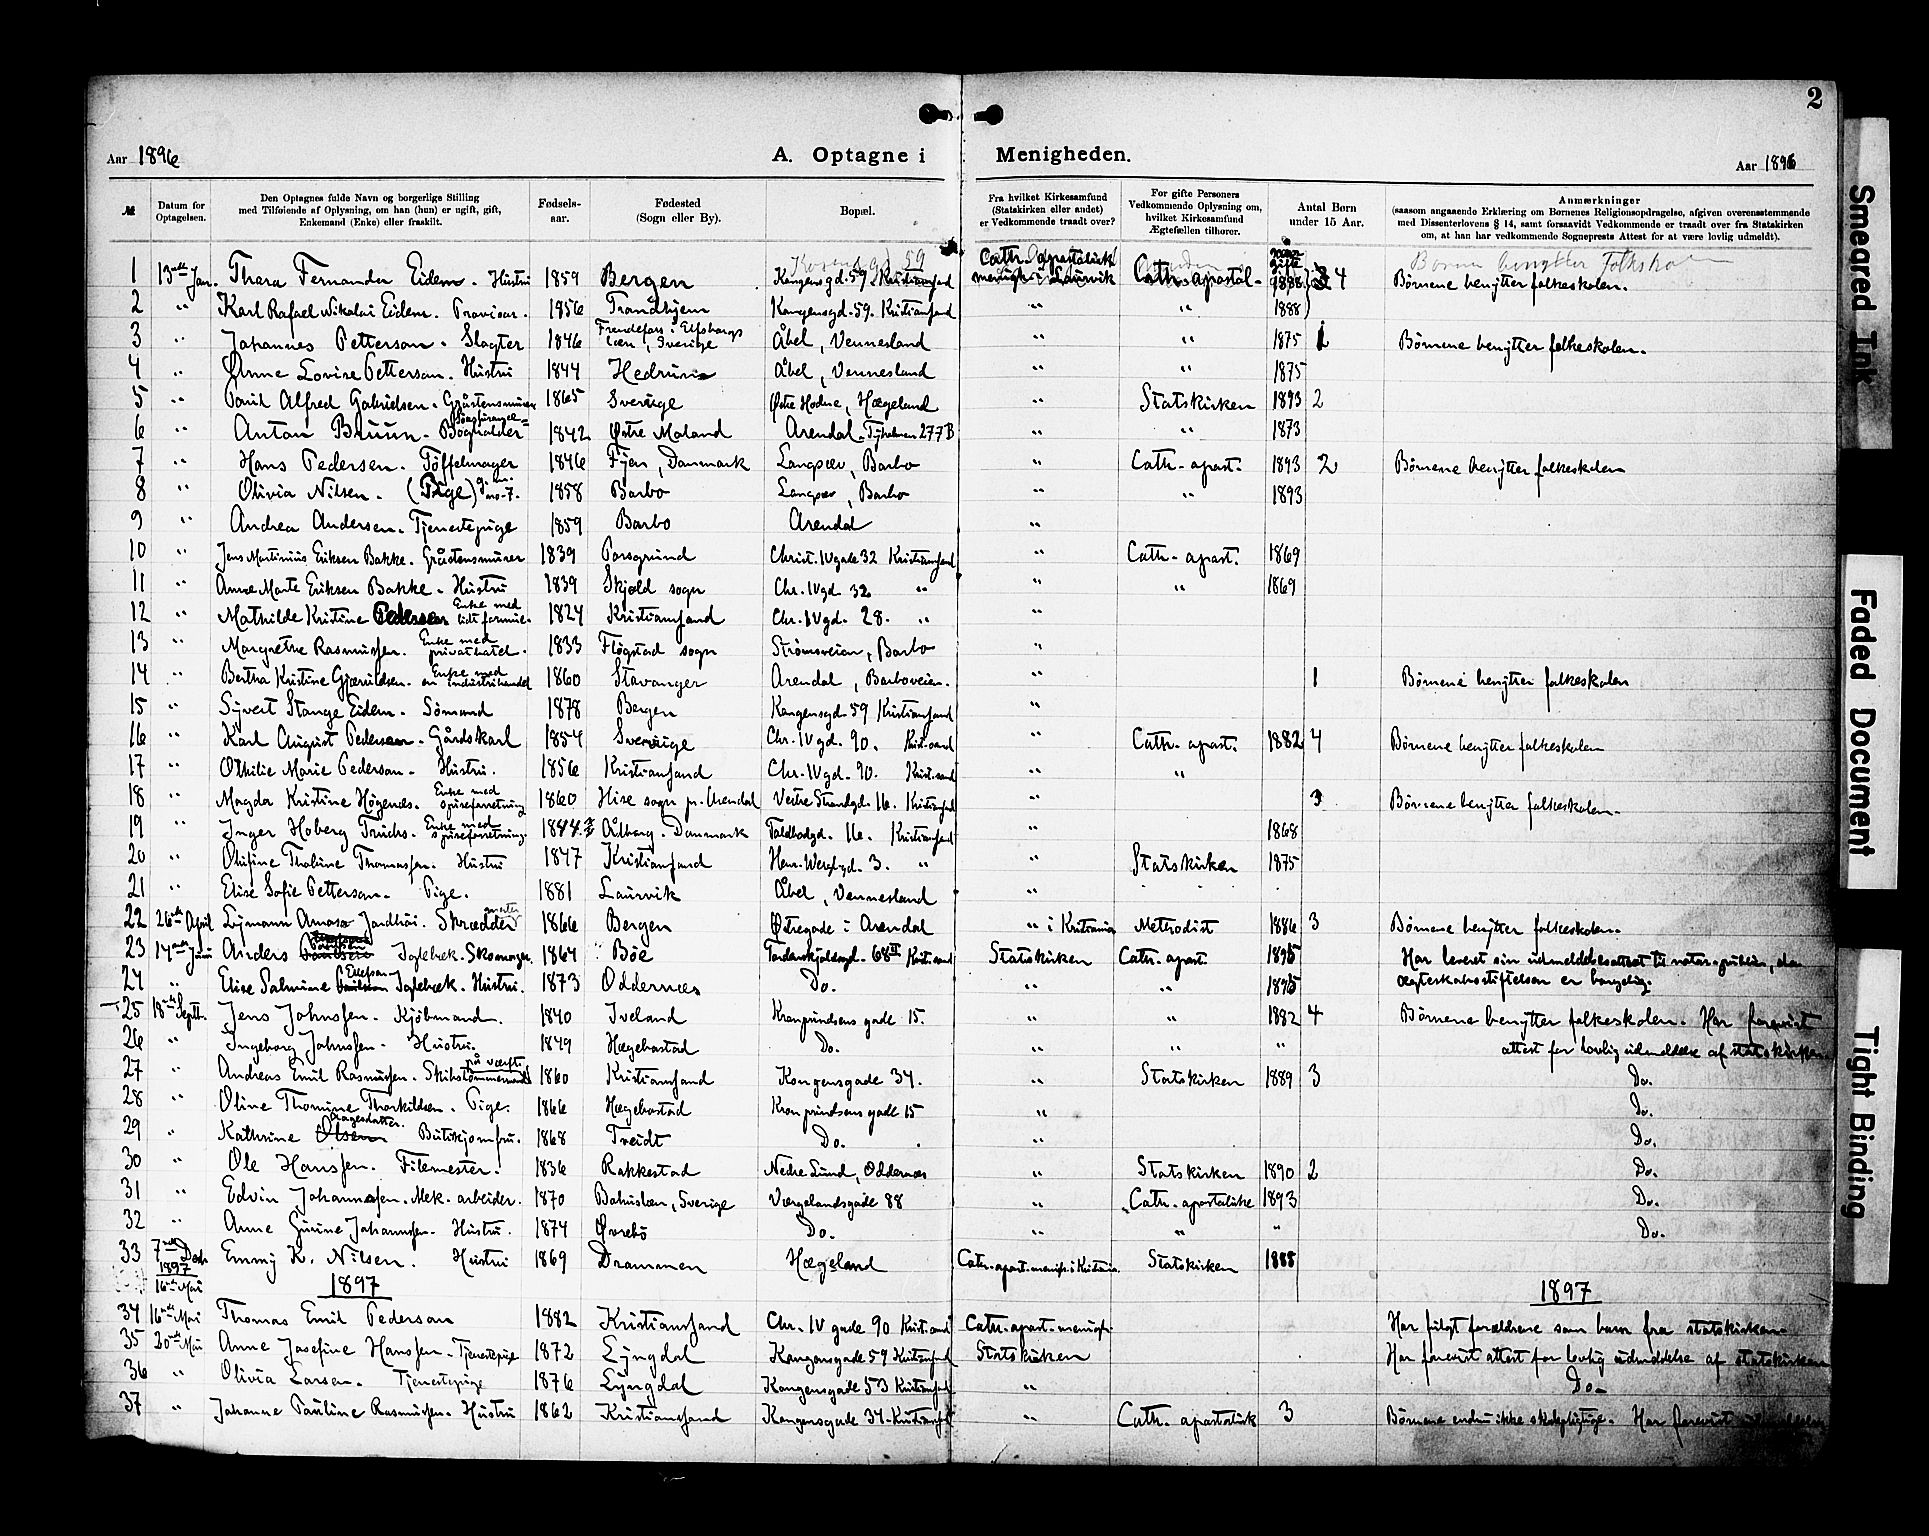 2
Aar 1896
A. Optagne i Menigheden.
Aar 1896
№
Datum for Optagelsen.
Den Optagnes fulde Navn og borgerlige Stilling med Tilføiende af Oplysning, om han (hun) er ugift, gift, Enkemand (Enke) eller fraskilt.
Fødselsaar.
Fødested (Sogn eller By).
Bopæl.
Fra hvilket Kirkesamfund (Statskirken eller andet) er Vedkommende traadt over?
For gifte Personers Vedkommende Oplysning om, hvilket Kirkesamfund Ægtefællen tilhører.
Antal Børn under 15 Aar.
Anmærkninger
(saasom angaaende Erklæring om Børnenes Religionsopdragelse, afgiven overensstemmende med Dissenterlovens § 14, samt forsaavidt Vedkommende er traadt over fra Statskirken om, at han har vedkommende Sogneprests Attest for at være lovlig udmeldt).
1 13de Jan. Thora Fernanda Eidem. Hustru 1859 Bergen Kongensgd. 59 Kristiansand Cath. Apostolisk menigh. i Laurvik Cath. apostol. 1888 4 Børnene benytter folkeskolen.
2 " Karl Rafael Nikolai Eidem. Provisor. 1856 Trondhjem Kongensgd. 59. Kristiansand " " 1888
3 " Johannes Petterson. Slagter 1846 Elfsborgs Læn, Sverige Åbel, Vennesland " " 1875 1 Børnene benytter folkeskolen.
4 " Anne Lovise Petterson. Hustru 1844 Hedrum Åbel, Vennesland " " 1875
5 " Alfred Gabrielsen. Gråstensmurer 1865 Sverige Østre Hodne, Hægeland " Statskirken 1893 2
6 " Anton Bruun. Bogholder 1842 Østre Moland Arendal. Tyholmen 277 B " " 1873
7 " Hans Pedersen. Tøffelmager 1846 Fyen, Danmark Langsæv, Barbo " Cath. apost. 1893 2 Børnene benytter folkeskolen
8 " Olivia Nilsen. (Pige) no. 7. 1858 Barbo Langsæv, Barbo " " 1893
9 " Andrea Andersen. Tjenestepige 1859 Barbo Arendal "
10 " Jens Martinius Eriksen Bakke. Gråstensmurer 1839 Porsgrund Christ. IV gade 32 Kristiansand " Cath. apost. 1869
11 " Anne Marte Eriksen Bakke. Hustru 1839 Skjold sogn Chr. IV gd. 32 " " " 1869
12 " Mathilde Kristine Pedersen Enke med lidt formue. 1824 Kristiansand Chr. IV gd. 28. " "
13 " Margrethe Rasmussen. Enke med privathotel. 1833 Fløgstad sogn Strømsveien, Barbo "
14 " Bertha Kristine Gjæruldsen. Enke med en industrihandel 1860 Stavanger Arendal, Barboveien. " 1 Børnene benytter folkeskolen
15 " Syvert Stange Eidem. Sømand 1878 Bergen Kongensgd. 59 Kristiansand "
16 " Karl August Pederson. Gårdskarl 1854 Sverige Chr. IV gd. 90. Krist.sand " Cath. apost. 1882 4 Børnene benytter folkeskolen
17 " Othilie Marie Pederson. Hustru. 1856 Kristiansand Chr. IV gd. 90. Krist.sand " "
18 " Magda Kristine Høgenæs. Enke med spiseforretning 1860 Hise sogn p. Arendal Vestre Strandgd. 16. Kristiansand " 3 Børnene benytter folkeskolen.
19 " Inger Hoberg Fruchs. Enke med spiseforretning. Ålborg. Danmark Toldbodgd. 16. Kristiansand " 1868
20 " Olufine Thobine Thomassen. Hustru 1847 Kristiansand Henr. Wergl.gd. 3. " " Statskirken 1875
21 " Elise Sofie Petterson. Pige. 1881 Laurvik Åbel, Vennesland "
22 26de April Lymann Amasa Jondhai. Skrædder 1866 Bergen Østregade i Arendal " i Kristiania Methodist 1886 3 Børnene benytter folkeskolen.
23 14de Juni Anders Iglebæk. Skomager 1864 Bøe Tordenskjoldsgd. 68 Krist.sand Statskirken Cath. apost. 1895 Har levert sin udmeldelsesattest til notar. publ., da
24 " Elise Palmine Iglebæk. Hustru. 1873 Oddernes Do. " " 1895 ægteskabsstiftelsen er borgelig.
25 18de Septb. Jens Johnssen. Kjøbmand. 1840 Iveland Kronprindsens gade 15. " " 1882 4 Børnene benytter folkeskolen. Har forevist
26 " Ingeborg Johnssen. Hustru. 1849 Hægebostad Do. " " " attest for lovlig udmeldelse af statskirken
27 " Andreas Emil Rasmussen. Skibstømmermand på værft 1860 Kristiansand Kongensgade 34. " Statskirken 1889 3 Do.
28 " Oline Thomine Thorkildsen. Pige. 1866 Hægebostad Kronprindsens gade 15 " Do.
29 " Kathrine Olsen Aagesdatter. Butikjomfru. 1868 Treidt Do. " Do.
30 " Ole Hanssen. Filemester. 1836 Rakkestad Nedre Lund, Oddernes " Statskirken 1890 2 Do.
31 " Edvin Johannesen. Mek. arbeider. 1870 Bahuslæn, Sverige Værgelandsgade 88 " Cath. apostoliske 1893 Do.
32 " Anne Gurine Johannesen. Hustru. 1874 Øvrebø Do. " " " Do.
33 7de Decb. Emmy K. Nilsen. Hustru 1869 Drammen Hægeland Cath. apost. menigh. i Kristiania Statskirken 1888
1897
16de Mai
1897
1897
34 16de Mai Thomas Emil Pederson 1882 Kristiansand Chr. IV gade 90 Krist.sand Cath. apost. menigh. Har fulgt forældrene som barn fra statskirken.
35 20de Mai Anne Josefine Hanssen. Tjenestepige 1872 Lyngdal Kongensgade 59 Kristiansand Statskirken Har forevist attest for lovlig udmeldelse af statskirken
36 " Olivia Larsen. Tjenestepige 1876 Lyngdal Kongensgade 53 Kristiansand " Do.
37 " Johanne Pauline Rasmussen. Hustru 1862 Kristiansand Kongensgade 34. Kristiansand " Cath. apostolisk 3 Børnene endnu ikke skolepligtige. Har forevist
Smeared Ink
Faded Document
Tight Binding